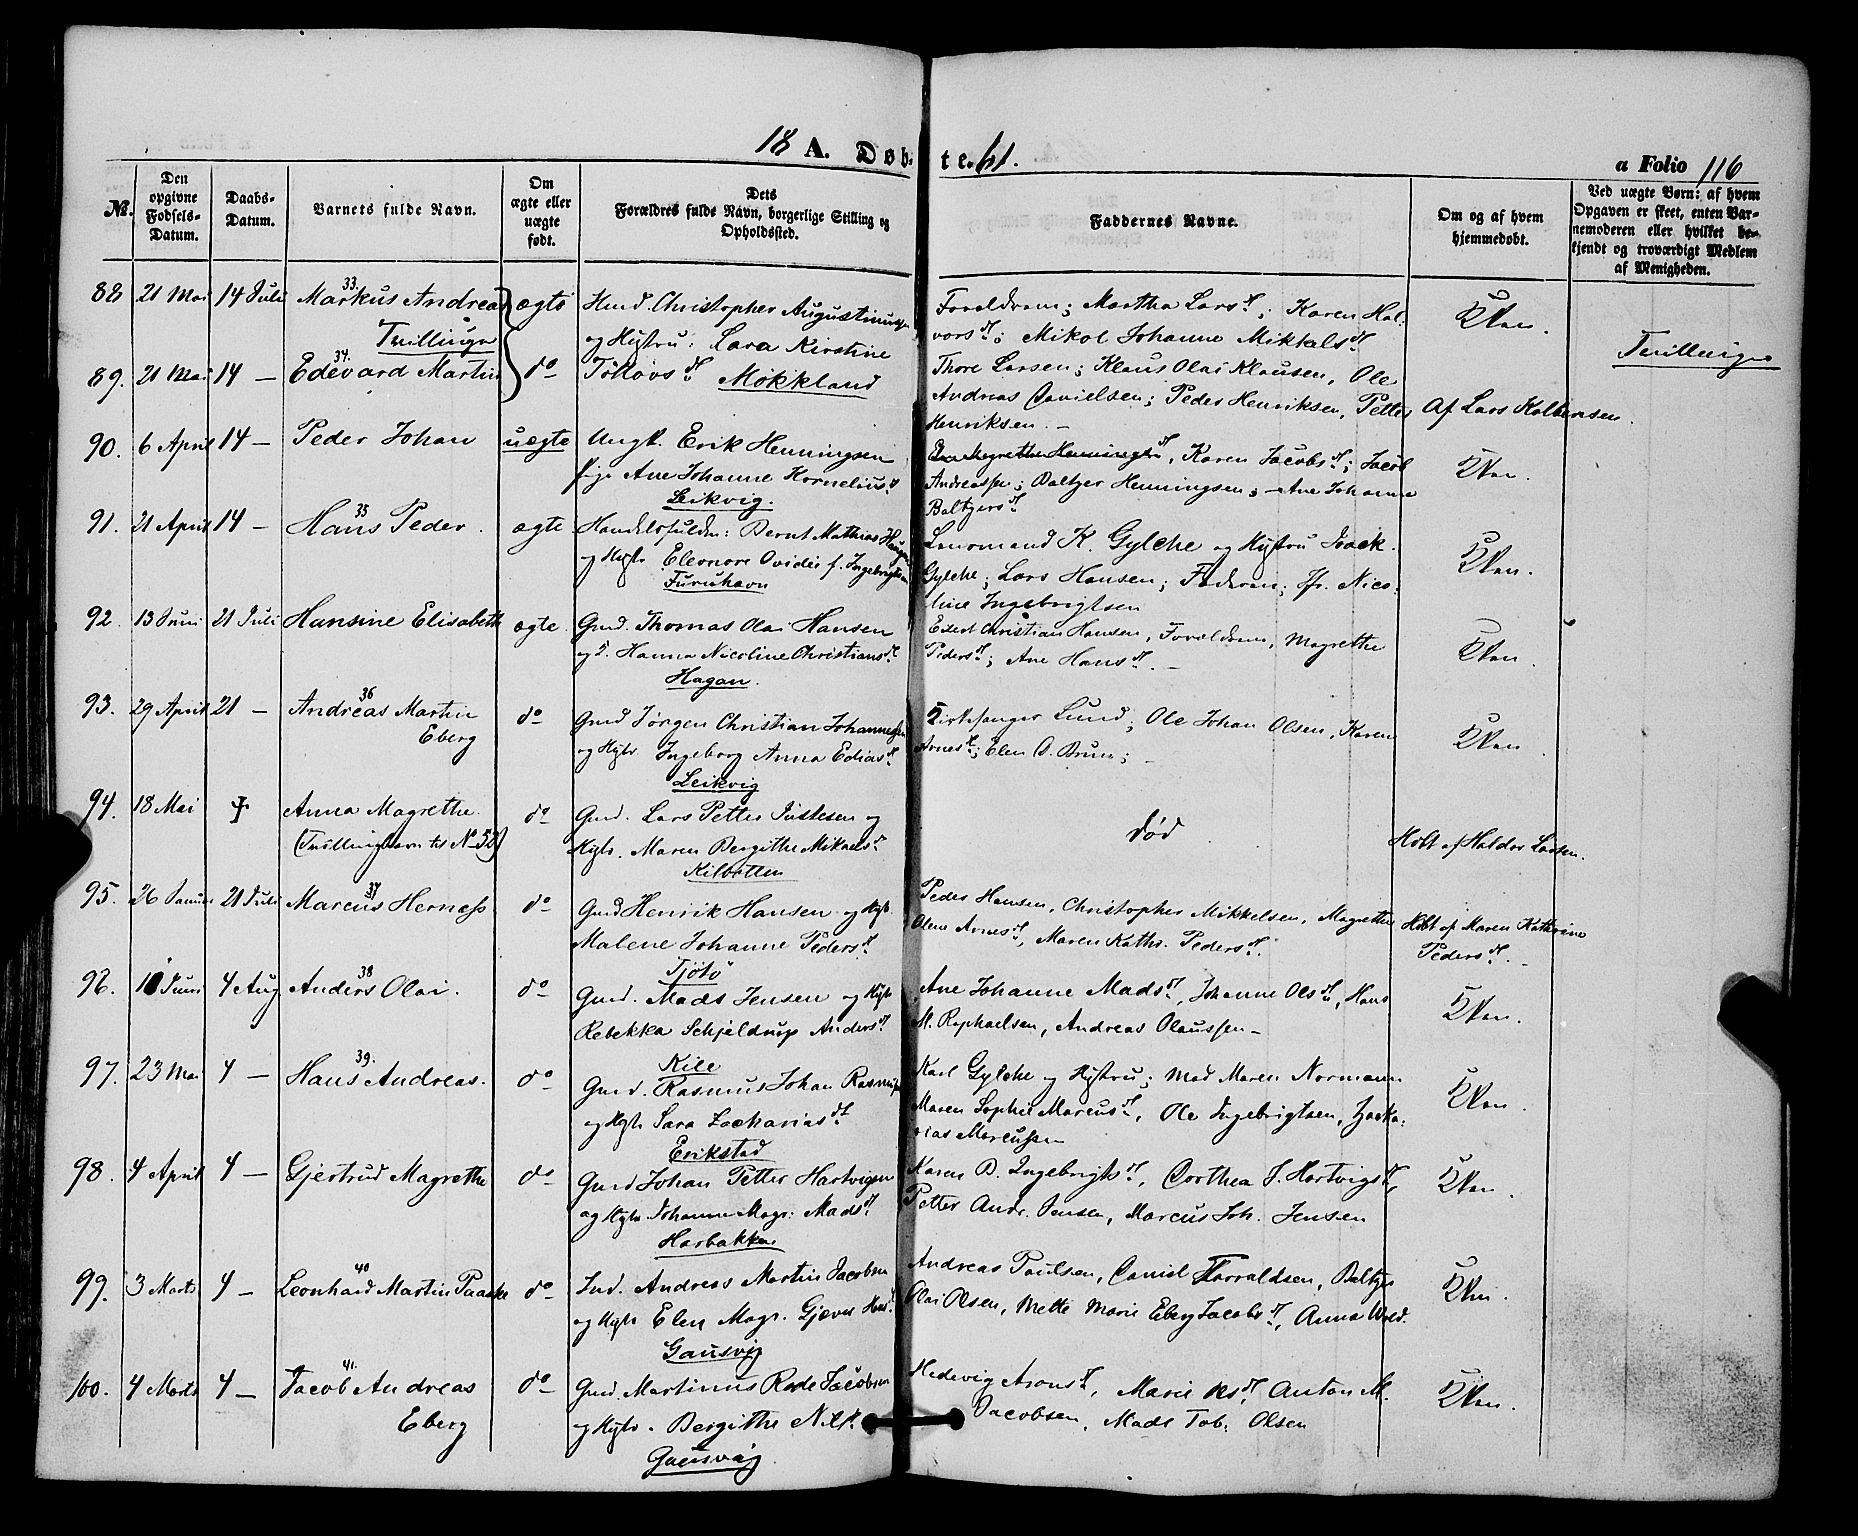 18 A. Døbte. 61.
a Folio 116
No.
Den opgivne Fødsels-Datum.
Daabs-Datum.
Barnets fulde Navn.
Om ægte eller uægte født.
Dets Forældres fulde Navn, borgerlige Stilling og Opholdssted.
Faddernes Navne.
Om og af hvem hjemmedøbt.
Ved uægte Børn: af hvem Opgaven er skeet, enten Barnemoderen eller hvilket bekjendt og troværdigt Medlem af Menigheden.
88 21 Mai 14 Juli 33. Markus Andreas ægte
Tvillinger
Hmd. Christopher Augustinussen
og Hustru: Lara Kirstine
Forældrene; Martha Larsd.; Karen Hal-
vorsd.; Mikol Johanne Mikkalsd.
Tvillinger
89. 21 Mai 14 — 34. Edevard Martin do
Mokkland
Thore Larsen; Klaus Olai Klausen, Ole
Andreas Danielsen; Peder Henriksen, Petter
Henriksen. —
Af Lars
90. 6 April 14 — Peder Johan uægte
Ungk. Erik Henningsen
pige Ane Johanne Korneliusd.
Leikvig.
Magrethe Henningsd., Karen Jacobsd.; Jacob
Andreassen; Baltzer Henningsen; — Ane Johanne
Baltzersd.
91. 21 April 14 — 35 Hans Peder. ægte
Handelsfuldm: Bernt Mathias Haugen
og Hustr. Eleonore Ovidie f. Ingebrigtsen
Furuhavn
Lensmand K. Gylche og Hustru
Gylche; Lars Hansen; Faderen; Fr. Nico-
line Ingebrigtsen
92. 13 Juni 21 Juli Hansine Elisabeth ægte
Gmd. Thomas Olai Hansen
og H. Hanna Nicoline Christiansd.
Hagan.
Edert Christian Hansen, Forældrene, Magrethe
Pedersd.; Ane Hansd. —
93. 29 April 21 — 36 Andreas Martin
Eberg
do
Gmd Jørgen Christian Johannessen
og Hustr. Ingeborg Anna Ediasd.
Leikvig
Kirkesanger Lund; Ole Johan Olsen, Karen
Arnesd.; Elen O. Bruun;
94. 18 Mai Anna Magrethe.
(Tvillingbarn til No 52)
do
Gmd. Lars Petter Justesen og
Hustr. Maren Bergithe Mikaelsd.
Kilbotten
død
Hdbt af Haldor Larsen.
95. 26 Januar 21 Juli 37 Marcus Hernæss do
Gmd Henrik Hansen og Hustr.
Malene Johanne Pedersd.
Tjøtø
Peder Hansen, Christopher Mikkelsen, Magrethe
Olene Arnesd., Maren Kathr. Pedersd.
Hdbt af Maren Kathrine
Pedersd. —
96. 18 Juni 4 Aug 38 Anders Olai. do
Gmd. Mads Jensen og Hustr
Rebekka Schjeldrup Andersd.
Kile
Ane Johanne Madsd., Johanne Olsd., Hans
M. Raphaelsen, Andreas Olaussen —
97. 23 Mai 4 — 39. Hans Andreas. do
Gmd. Rasmus Johan Rasmussen
og Hustr Sara Zachariasd.
Erikstad
Karl Gylche og Hustru; Mad Maren Normann
Maren Sophie Marcusd., Ole Ingebrigtsen, Zacka-
rias Marcussen
98. 4 April 4 — Gjertrud Magrethe do
Gmd Johan Petter Hartvigsen
og Hustr Johanna Magr: Madsd.
Harbakken
Karen B. Ingebrigtsd., Dorthea J. Hartvigsd.,
Petter Andr. Jensen, Marcus Joh. Jensen
99. 3 Marts 4 — 40 Leonhard Martin Paaske do
Ind. Andreas Martin Jacobsen
og Hustr Elen Magr. Gjæver
Gausvig
Andreas Paulsen, Daniel Harraldsen, Baltzer
Olai Olsen, Mette Marie Eberg Jacobsd., Anna
100. 4 Marts 4 — 41. Jacob Andreas
Eberg
do
Gmd. Martinus Rode Jacobsen
og Hustr. Bergithe Nilsd.
Gausvig
Hedevig Aronsd., Marie Olsd., Anton M.
Jacobsen, Mads Tob: Olsen